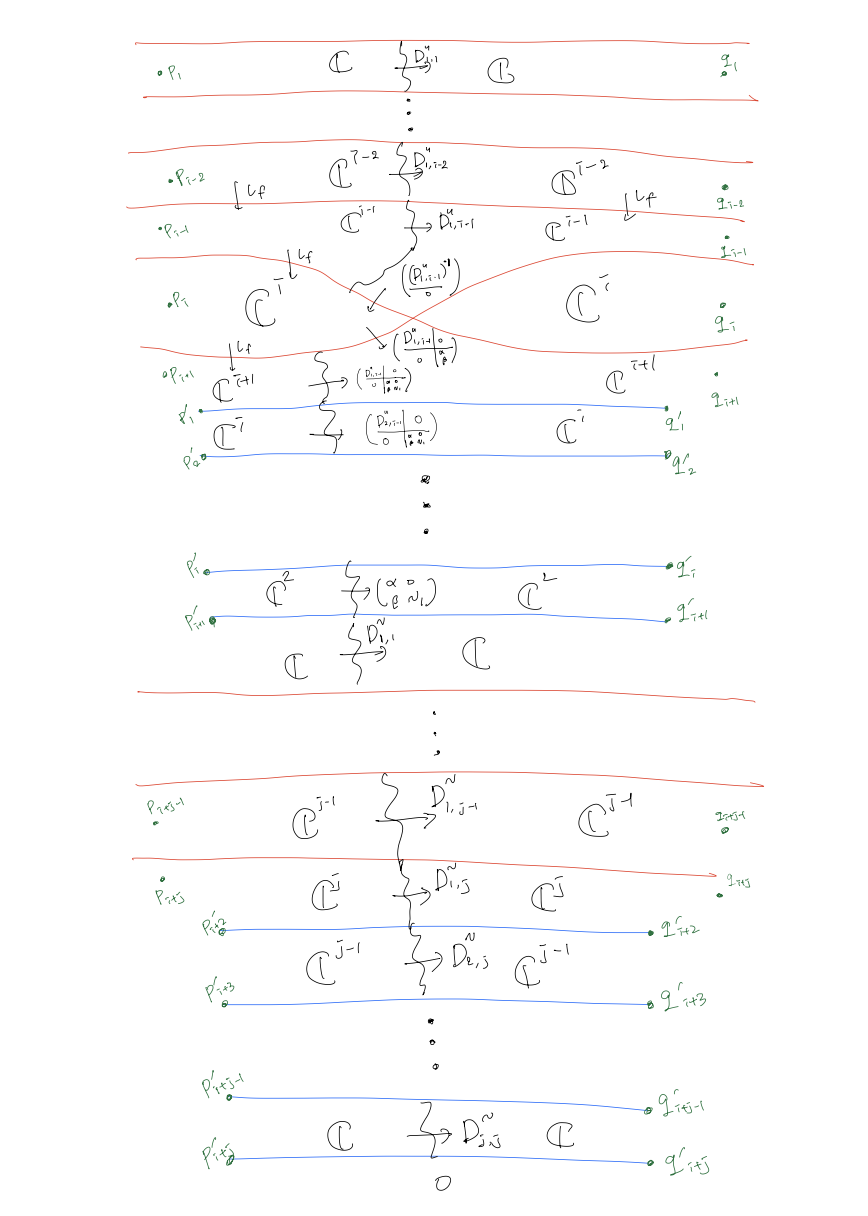 •P₁ ℂ D^u_{1,1} ℂ q₁
•P_{i-2} ℂ^{i-2} D^u_{1,i-2} ℂ^{i-2} q_{i-2}
↓ L_f ↓ L_f
•P_{i-1} ℂ^{i-1} → D^u_{1,i-1} ℂ^{i-1} q_{i-1}
↓ L_f
•P_i ℂ^i ℂ^i q_i
↓ L_f
•P_{i+1} ℂ^{i+1} ℂ^{i+1} q_{i+1}
P'₁ q'₁
ℂ^i ℂ^i
P'₂ q'₂
P'_i q'_i
ℂ² → (α 0 / β N₁) ℂ²
P'_{i+1} q'_{i+1}
ℂ D^N_{1,1} ℂ
P_{i+j-1} ℂ^{j-1} D^N_{1,j-1} ℂ^{j-1} q_{i+j-1}
P_{i+j} ℂ^j D^N_{1,j} ℂ^j q_{i+j}
P'_{i+2} q'_{i+2}
ℂ^{j-1} D^N_{2,j} ℂ^{j-1}
P'_{i+3} q'_{i+3}
P'_{i+j-1} q'_{i+j-1}
ℂ D^N_{j,j} ℂ
P'_{i+j} q'_{i+j}
0